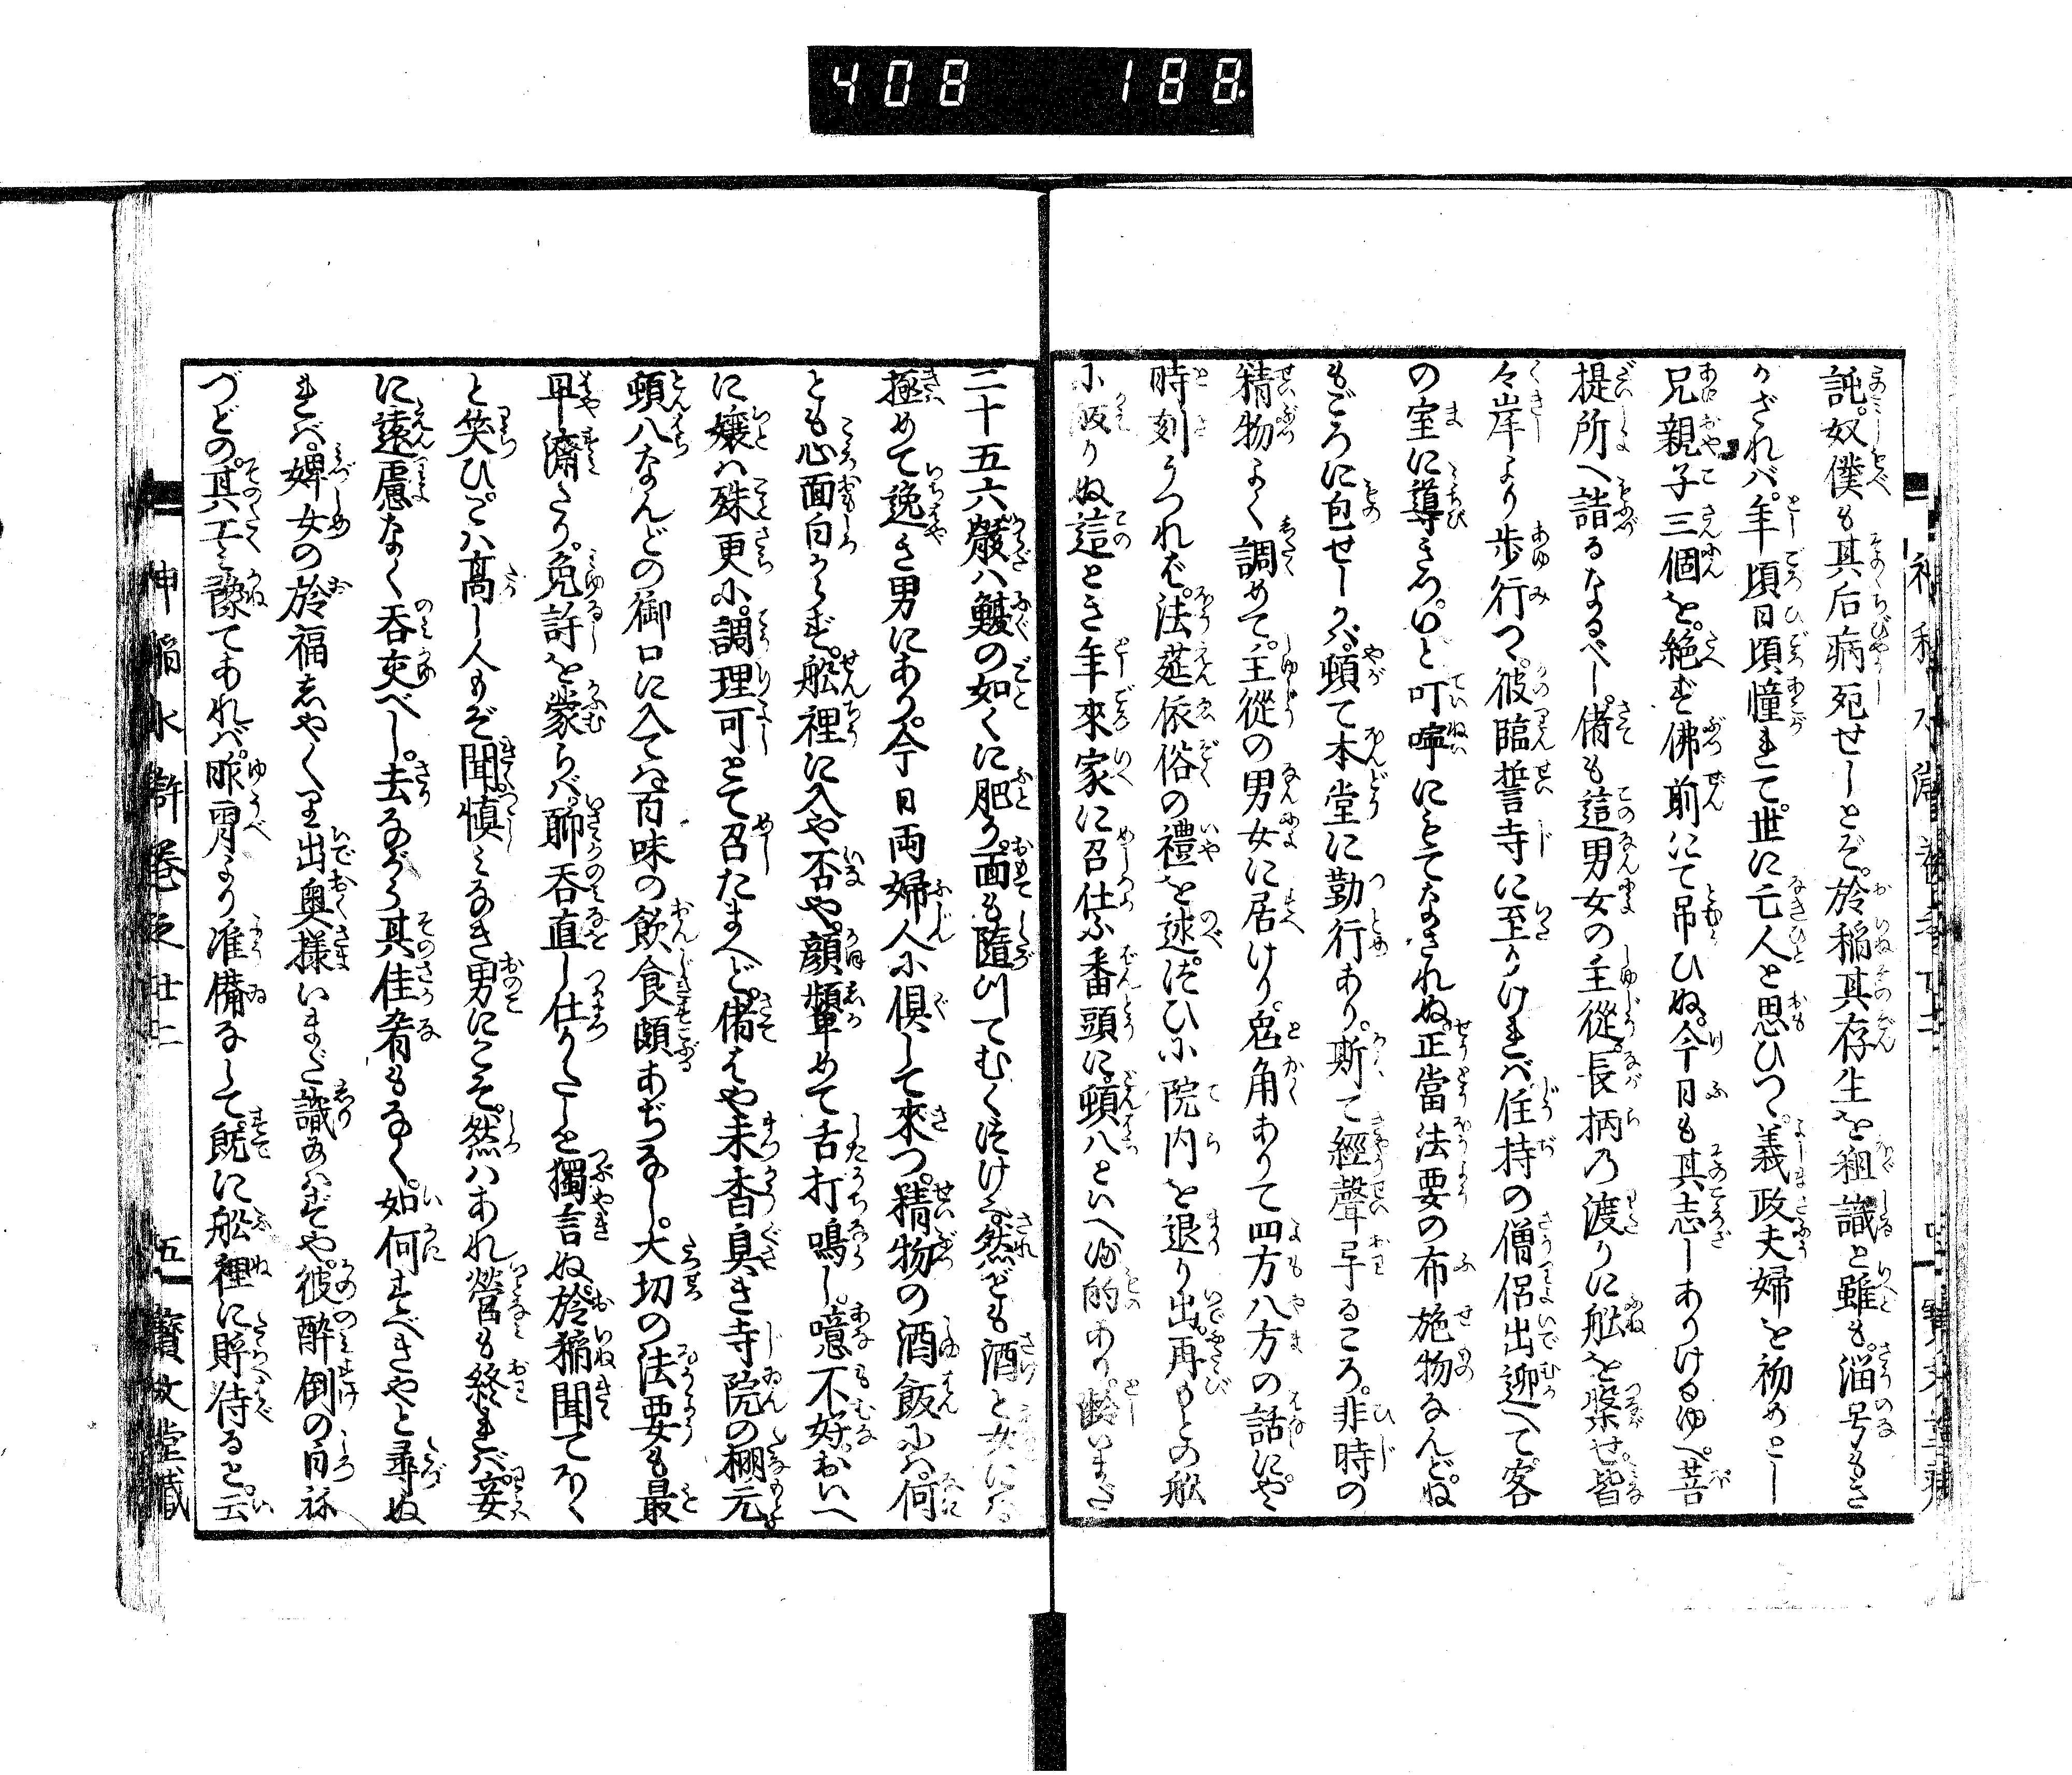 408 188
託。奴僕も其后病死せしとぞ。於稲其存生を粗識と雖も。淄号もき
かざれバ。年頃日頃憧れて。世に亡人と思ひつ。義政夫婦を初めとし
兄親子三個を。絶ず佛前にて吊ひぬ。今日も其志しありけるゆへ。菩
提所へ詣るなるべし。偖も這男女の主從。長柄乃渡りに舩を槃せ。皆
々岸より歩行つ。彼臨誓寺に至りけれバ。住持の僧侶出迎へて。客
の室に導きつ。いと叮嚀にもてなされぬ。正當法要の布施物なんど。ね
もごろに包せしかバ。頓て本堂に勤行あり。斯て經聲畢るころ。非時の
精物よく調めて。主從の男女に居けり。兎角ありて四方八方の話にや。
時刻うつれば。法莚依俗の禮を述。つひに院内を退り出。再もとの舩
に皈りぬ。這とき年來家に召仕ふ番頭に。頓八といへる的あり。齡いまだ
二十五六齡ハ鰒の如くに肥り。面も隨ひてむくつけき。然ども酒と女にハ
極めて逸き男にあり。今日両婦人に倶して來つ。精物の酒飯にハ。何
とも心面白からず。舩裡に入や否や。顔顰めて舌打鳴し。噫不好。おいへ
に嬢ハ殊更に。調理可とて召たまへど。偖もや未香臭き寺院の棚元
頓八なんどの御口に入てハ。百味の飲食頗あぢなし。大切の法要も最
早濟たり。免許を蒙らバ。聊呑直し仕りたしと獨言ぬ。於稲聞てほゝ
と笑ひ。こハ高し人もぞ聞。慎みなき男にこそ。然ハあれ營も終れバ。妾
に遠慮なく呑吏べし。去ながら其佳肴もなく。如何すべきやと尋ぬ
れバ。婢女の於福しやくり出。奥様いまだ識玉ハずや。彼醉倒の白祢
づどの。其工ミ豫てあれバ。昨宵より准備なして。既に舩裡に貯侍ると。云
神稲水滸巻之廿二　五　寳文堂藏